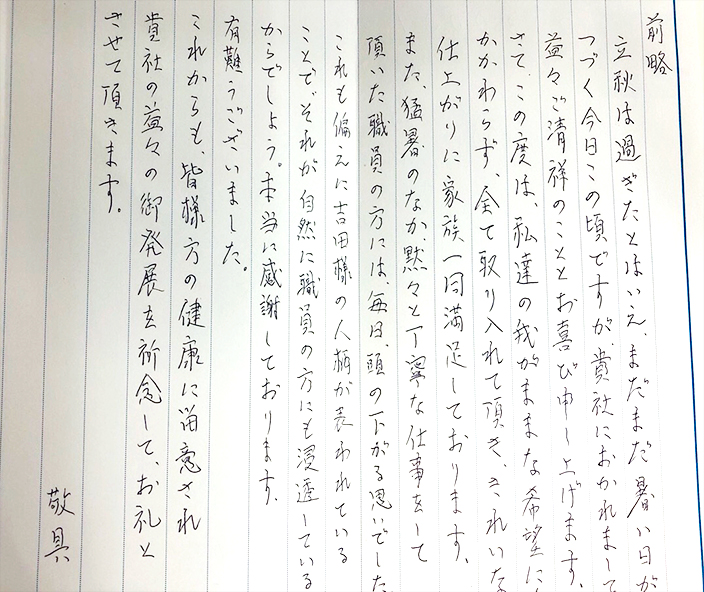 前略
立秋は過ぎたとはいえ、まだまだ暑い日が
つづく今日この頃ですが、貴社におかれまして
益々ご清祥のこととお喜び申し上げます。
さて、この度は、私達の我がままな希望に
かかわらず、全て取り入れて頂き、きれいな
仕上がりに家族一同満足しております。
また、猛暑のなか、黙々と丁寧な仕事をして
頂いた職員の方には、毎日、頭の下がる思いでした
これも偏えに吉田様の人柄が表われている
ことで、それが自然に職員の方にも浸透している
からでしょう。本当に感謝しております。
有難うございました。
これからも、皆様方の健康に留意され
貴社の益々の御発展を祈念して、お礼と
させて頂きます。
敬具